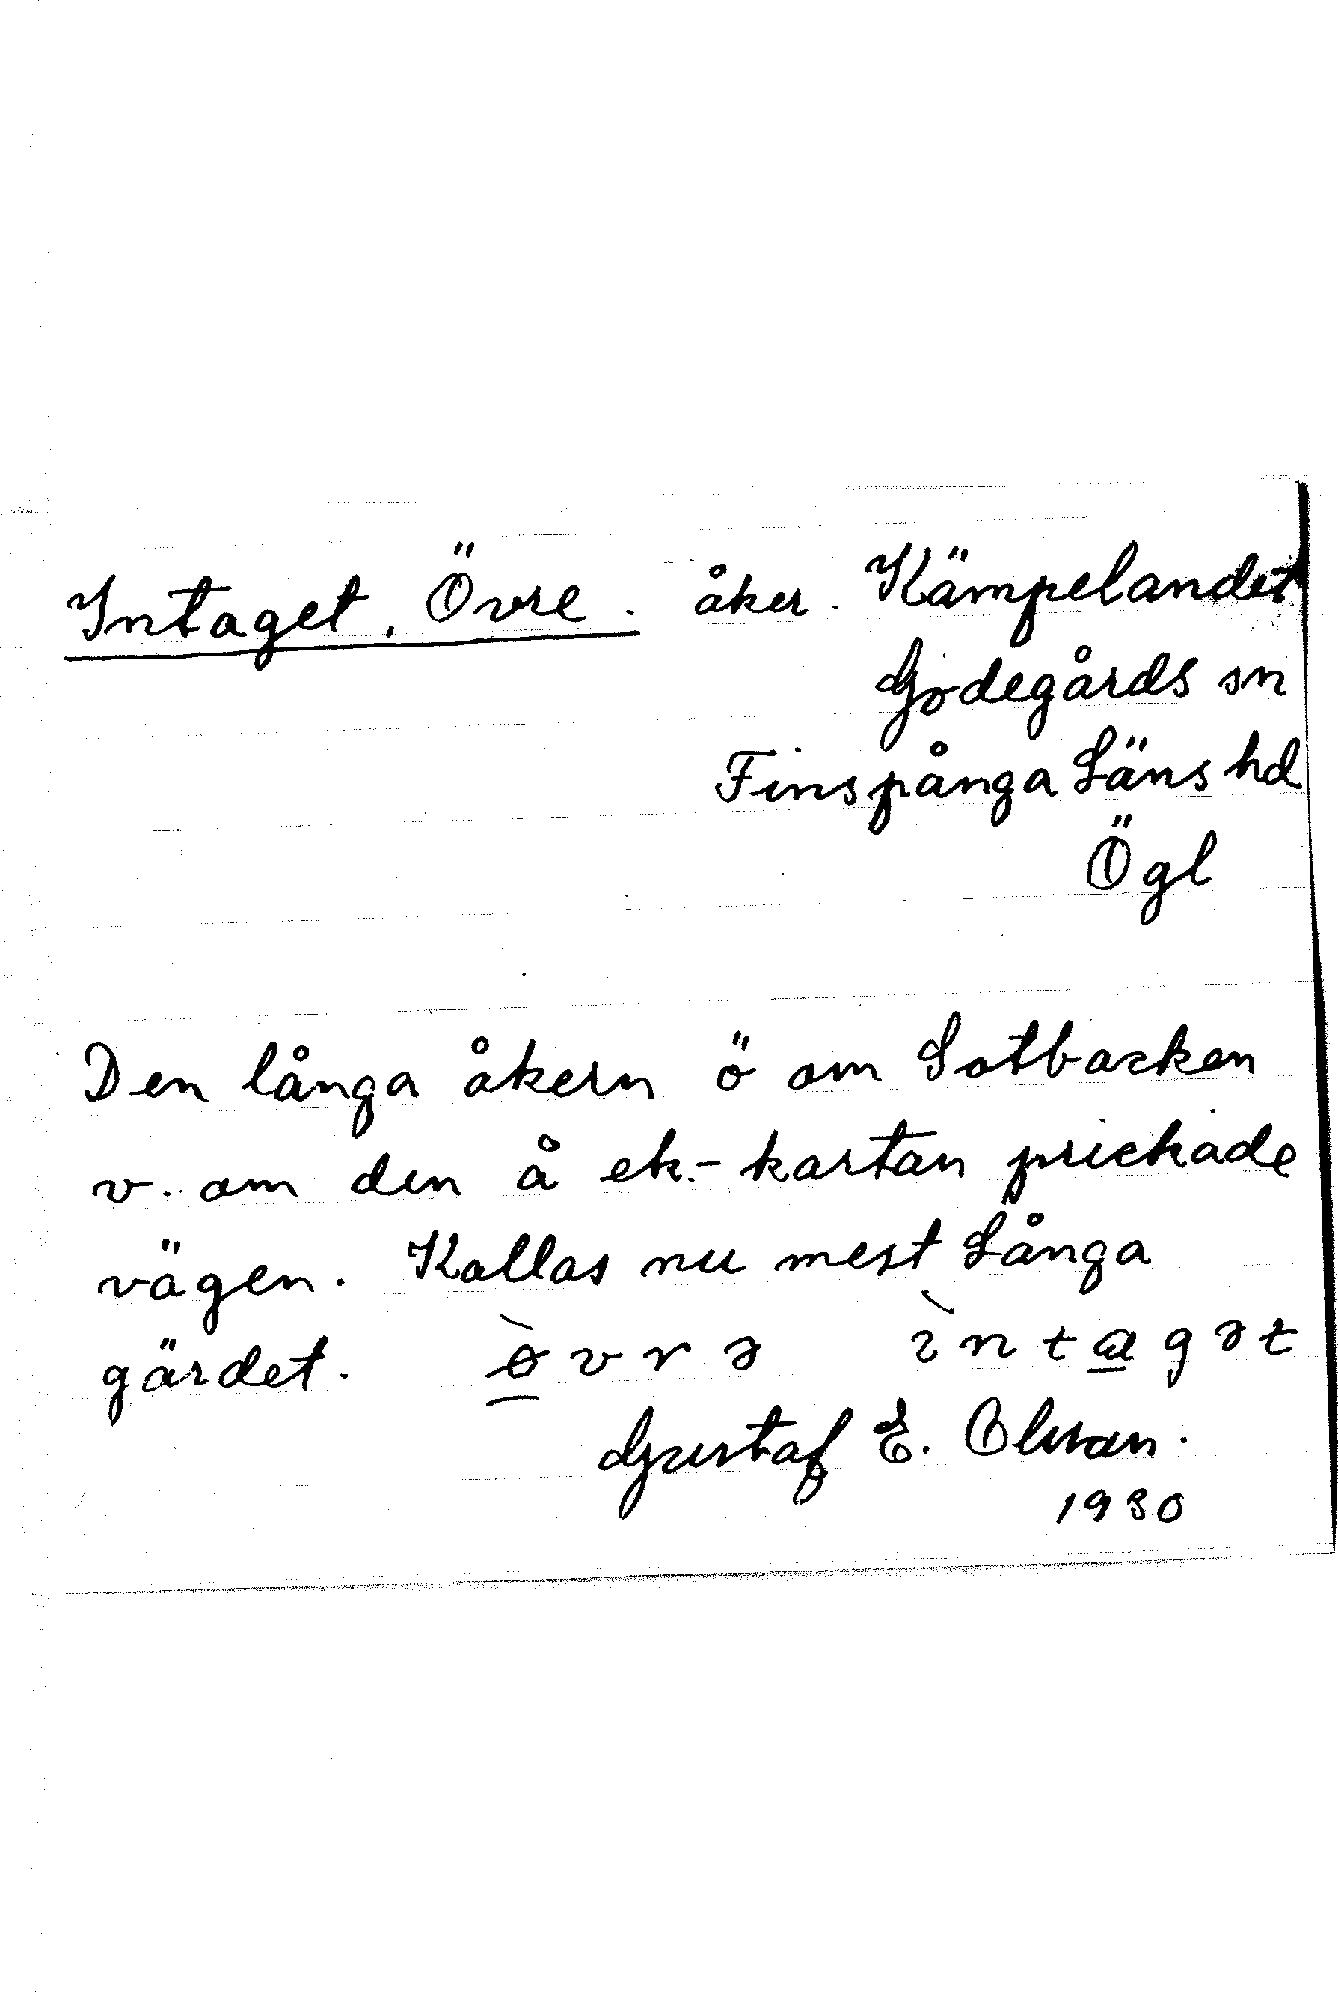 Intaget, Övre. åker. Kämpelandet
Godegårds sn
Finspånga Läns hd
Ögl
Den långa åkern ö om Sotbacken
v. om den å ek.-kartan prickade
vägen. Kallas nu mest Långa
gärdet. ø̱̀vrə ìntɑ̱gət
Gustaf E. Olsson.
1930